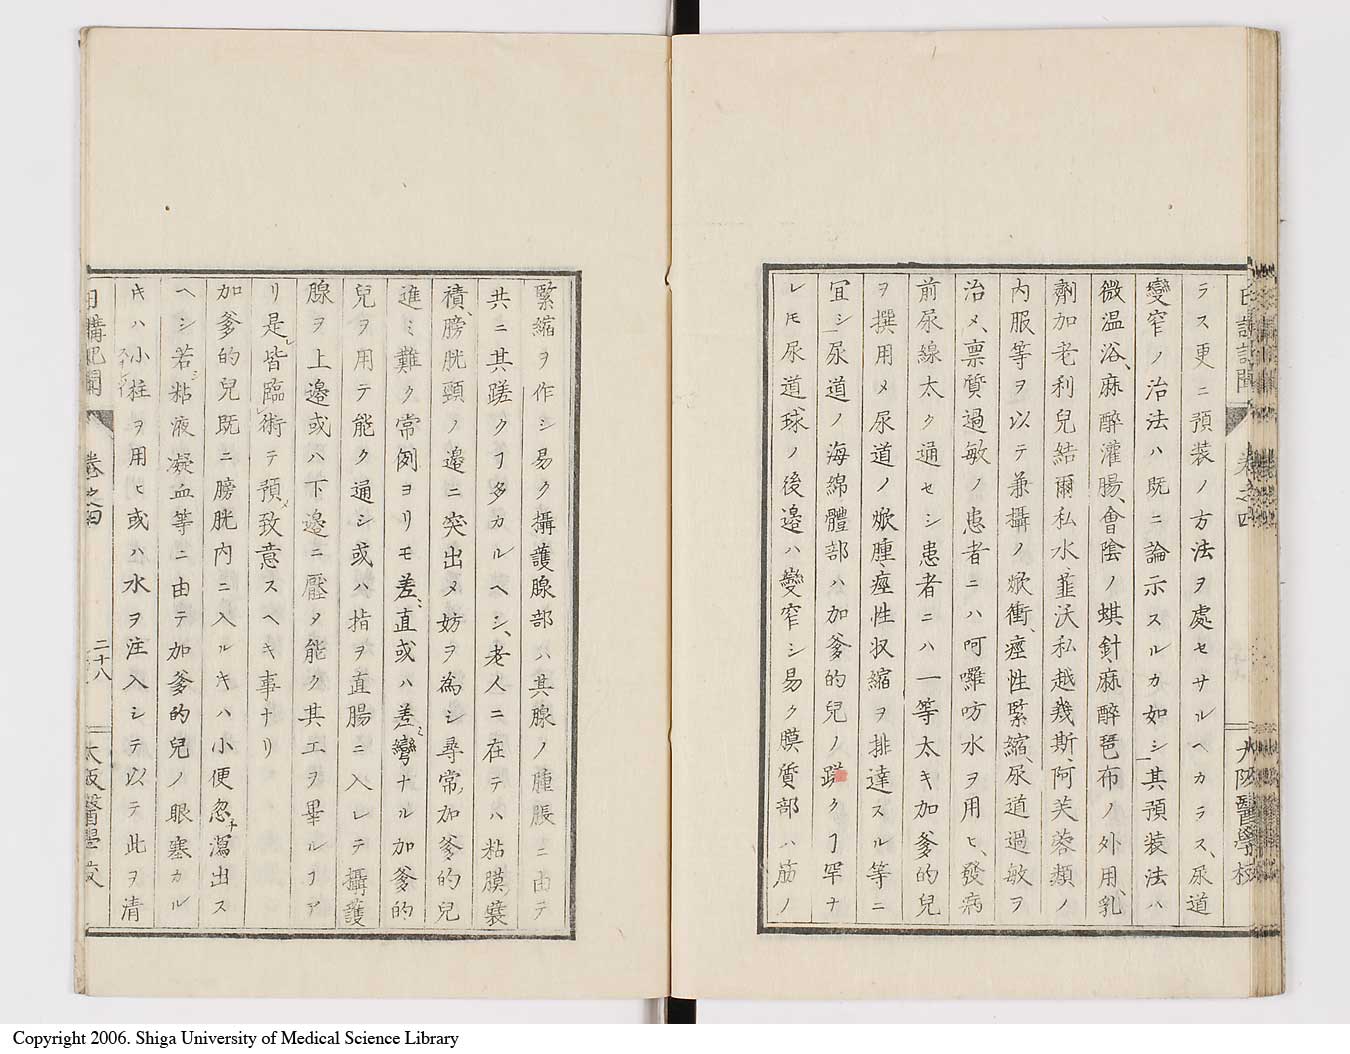 日講記聞 卷之四 大阪醫學校
ラス更ニ預装ノ方法ヲ處セサルヘカラス、尿道
變窄ノ治法ハ既ニ論示スルカ如シ其預装法ハ
微温浴、麻醉灌腸、會陰ノ蜞針、麻醉琶布ノ外用、乳
劑加老利兒結爾私水、韮沃私越幾斯、阿芙蓉類ノ
内服等ヲ以テ兼攝ノ焮衝、痙性緊縮、尿道過敏ヲ
治メ、稟質過敏ノ患者ニハ呵囉吩水ヲ用ヒ、發病
前尿線太ク通セシ患者ニハ一等太キ加爹的兒
ヲ撰用メ尿道ノ焮腫、痙性収縮ヲ排達スル等ニ
冝シ尿道ノ海綿體部ハ加爹的兒ノ蹉クヿ罕ナ
レモ尿道球ノ後邉ハ變窄シ易ク膜質部ハ筋ノ
緊縮ヲ作シ易ク攝護腺部ハ其腺ノ腫脹ニ由テ
共ニ其蹉クヿ多カルヘシ、老人ニ在テハ粘膜襞
積、膀胱頸ノ邉ニ突出メ妨ヲ為シ尋常加爹的兒
進ミ難ク常例ヨリモ差直或ハ差彎ナル加爹的
兒ヲ用テ能ク通シ或ハ指ヲ直腸ニ入レテ攝護
腺ヲ上邉或ハ下邉ニ壓メ能ク其工ヲ畢ルヿア
リ是皆臨術テ預致意スヘキ事ナリ
加爹的兒既ニ膀胱内ニ入ルキハ小便忽瀉出ス
ヘシ若粘液凝血等ニ由テ加爹的兒ノ眼塞カル
キハ小柱ヲ用ヒ或ハ水ヲ注入シテ以テ此ヲ清
日講記聞 卷之四 二十八 大阪醫學校
Copyright 2006. Shiga University of Medical Science Library